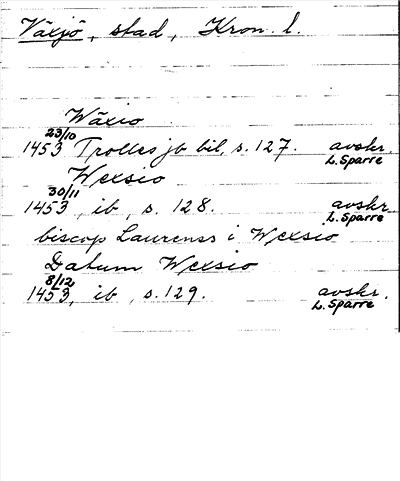 Växjö, stad, Kron. l.
Wäxio
23/10
1453 Trolles jb bil, s. 127. avskr.
L. Sparre
Wexsio
30/11
1453, ib, s. 128. avskr.
L. Sparre
biscop Laurenss i Wexsio
Datum Wexsio
8/12
1453, ib, s. 129. avskr.
L. Sparre